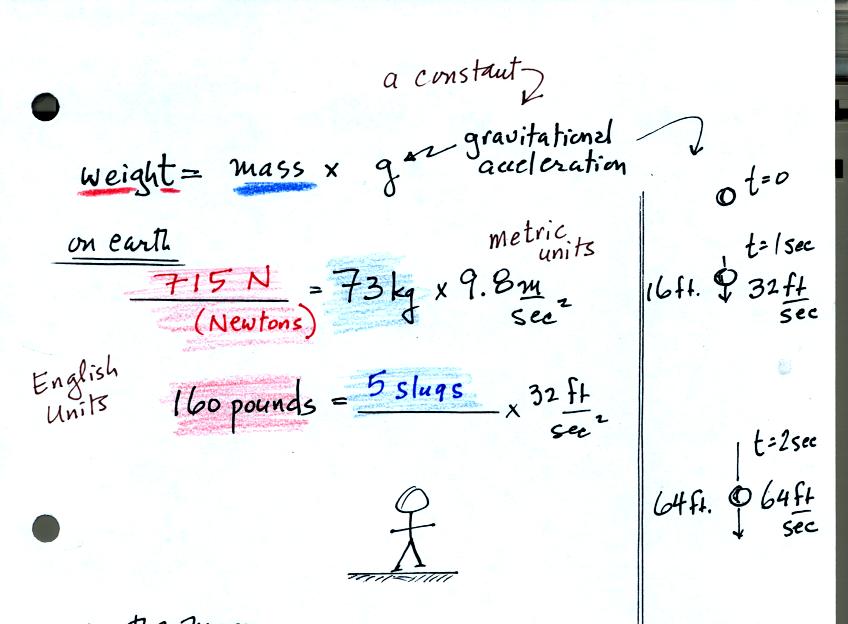 a constant
weight = mass × g
gravitational
acceleration
on earth
metric
units
715 N = 73 kg × 9.8 m/sec²
(Newtons)
English
Units
160 pounds = 5 slugs × 32 ft/sec²
t=0
t=1sec
16ft. 32 ft/sec
t=2sec
64 ft. 64 ft/sec